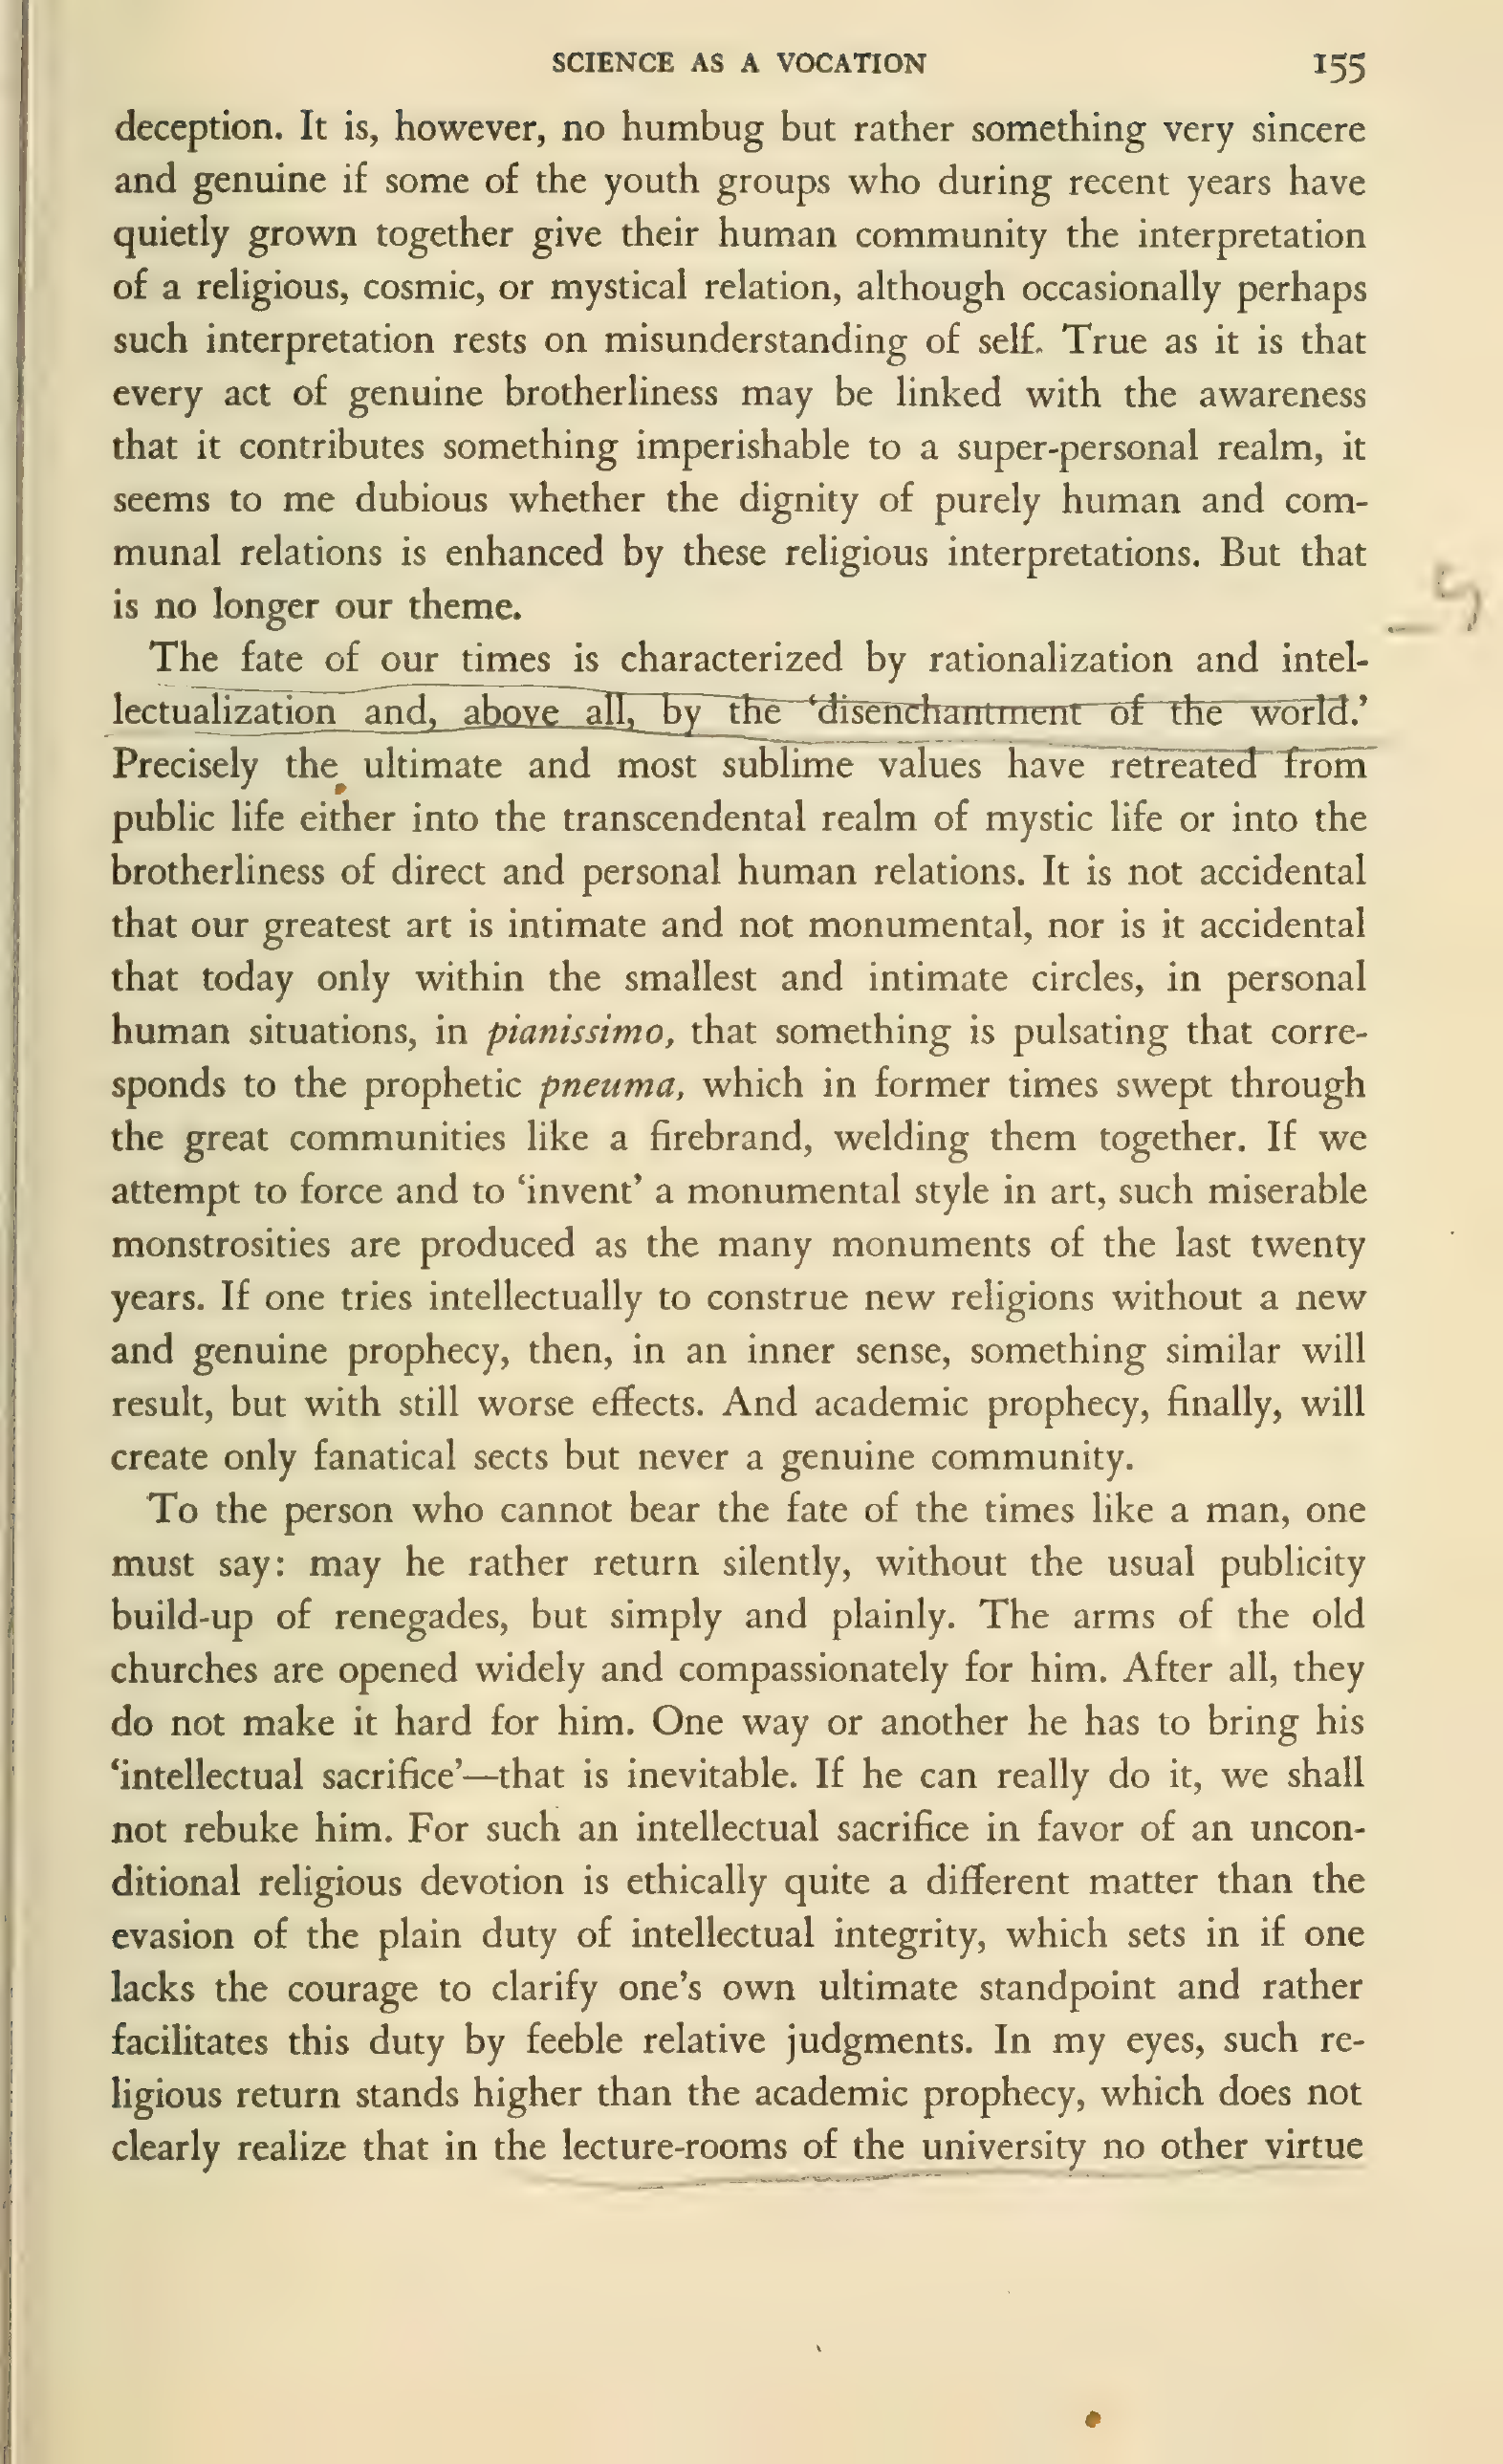 SCIENCE AS A VOCATION 155
deception. It is, however, no humbug but rather something very sincere
and genuine if some of the youth groups who during recent years have
quietly grown together give their human community the interpretation
of a religious, cosmic, or mystical relation, although occasionally perhaps
such interpretation rests on misunderstanding of self. True as it is that
every act of genuine brotherliness may be linked with the awareness
that it contributes something imperishable to a super-personal realm, it
seems to me dubious whether the dignity of purely human and com-
munal relations is enhanced by these religious interpretations. But that
is no longer our theme.
The fate of our times is characterized by rationalization and intel-
lectualization and, above all, by the ‘disenchantment of the world.’
Precisely the ultimate and most sublime values have retreated from
public life either into the transcendental realm of mystic life or into the
brotherliness of direct and personal human relations. It is not accidental
that our greatest art is intimate and not monumental, nor is it accidental
that today only within the smallest and intimate circles, in personal
human situations, in pianissimo, that something is pulsating that corre-
sponds to the prophetic pneuma, which in former times swept through
the great communities like a firebrand, welding them together. If we
attempt to force and to ‘invent’ a monumental style in art, such miserable
monstrosities are produced as the many monuments of the last twenty
years. If one tries intellectually to construe new religions without a new
and genuine prophecy, then, in an inner sense, something similar will
result, but with still worse effects. And academic prophecy, finally, will
create only fanatical sects but never a genuine community.
To the person who cannot bear the fate of the times like a man, one
must say: may he rather return silently, without the usual publicity
build-up of renegades, but simply and plainly. The arms of the old
churches are opened widely and compassionately for him. After all, they
do not make it hard for him. One way or another he has to bring his
‘intellectual sacrifice’—that is inevitable. If he can really do it, we shall
not rebuke him. For such an intellectual sacrifice in favor of an uncon-
ditional religious devotion is ethically quite a different matter than the
evasion of the plain duty of intellectual integrity, which sets in if one
lacks the courage to clarify one’s own ultimate standpoint and rather
facilitates this duty by feeble relative judgments. In my eyes, such re-
ligious return stands higher than the academic prophecy, which does not
clearly realize that in the lecture-rooms of the university no other virtue